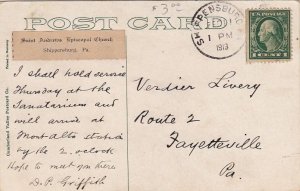 $3.00
POST CARD
Saint Andrews Episcopal Church
Shippensburg, Pa.
SHIPPENSBURG
1 PM
1913
I shall hold service
Thursday at the
Sanatarium and
will arrive at
Mont Alto station
by the 2. o'clock
Hope to meet you there
D. P. Griffith
Verdier Livery
Route 2
Fayetteville
Pa.
Cumberland Valley Postcard Co.
Printed in Germany